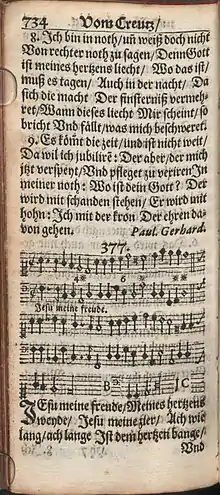 734 Vom Creutz/
8. Ich bin in noth/ uñ weiß doch nicht
Von rechter noth zu sagen/ Denn Gott
ist meines hertzens liecht/ Wo das ist/
muß es tagen/ Auch in der nacht/ Da
sich die macht Der finsterniß vermeh-
ret/ Wann dieses liecht Mir scheint/ so
bricht Und fällt/ was mich beschweret.
9. Es kömt die zeit/ und ist nicht weit/
Da wil ich jubilirē: Der aber/ der mich
itzt verspeyt/ Und pfleget zu vexiren In
meiner noth: Wo ist dein Gott? Der
wird mit schanden stehen/ Er wird mit
hohn: Ich mit der kron Der ehren da-
von gehen. Paul. Gerhard.
377.
Jesu meine freude.
JEsu meine freude/ Meines hertzens
weyde/ Jesu meine zier/ Ach wie
lang/ ach lange Ist dem hertzen bange/
Und